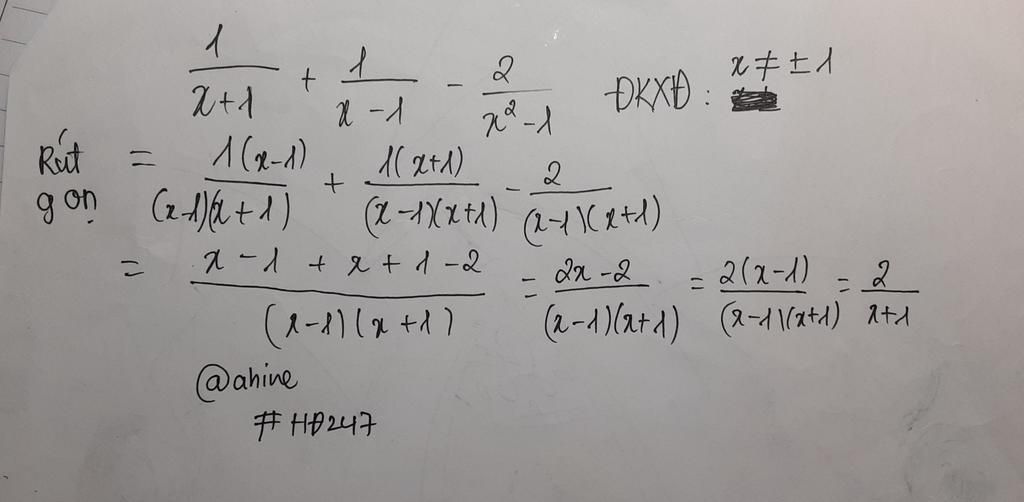 1/(x+1) + 1/(x-1) - 2/(x²-1) ĐKXĐ : x ≠ ±1
Rút gọn = 1(x-1)/(x-1)(x+1) + 1(x+1)/(x-1)(x+1) - 2/(x-1)(x+1)
= x-1+x+1-2/(x-1)(x+1) = 2x-2/(x-1)(x+1) = 2(x-1)/(x-1)(x+1) = 2/x+1
@ahine
#HĐ247